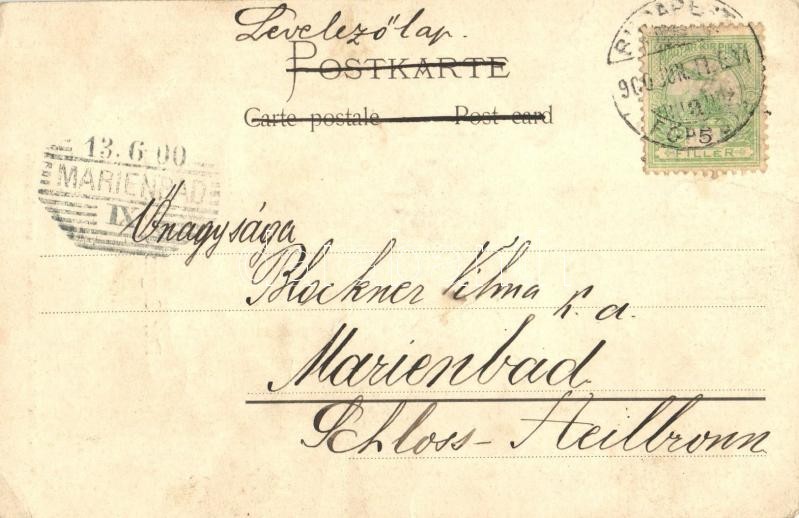 Levelezőlap.
POSTKARTE
Carte postale Post card
BUDAPEST
900 JUN. 11.
5
FILLER
13. 6 00
MARIENBAD
IX
Őnagysága
Blockner Vilma k. a.
Marienbad
Schloss-Heilbronn